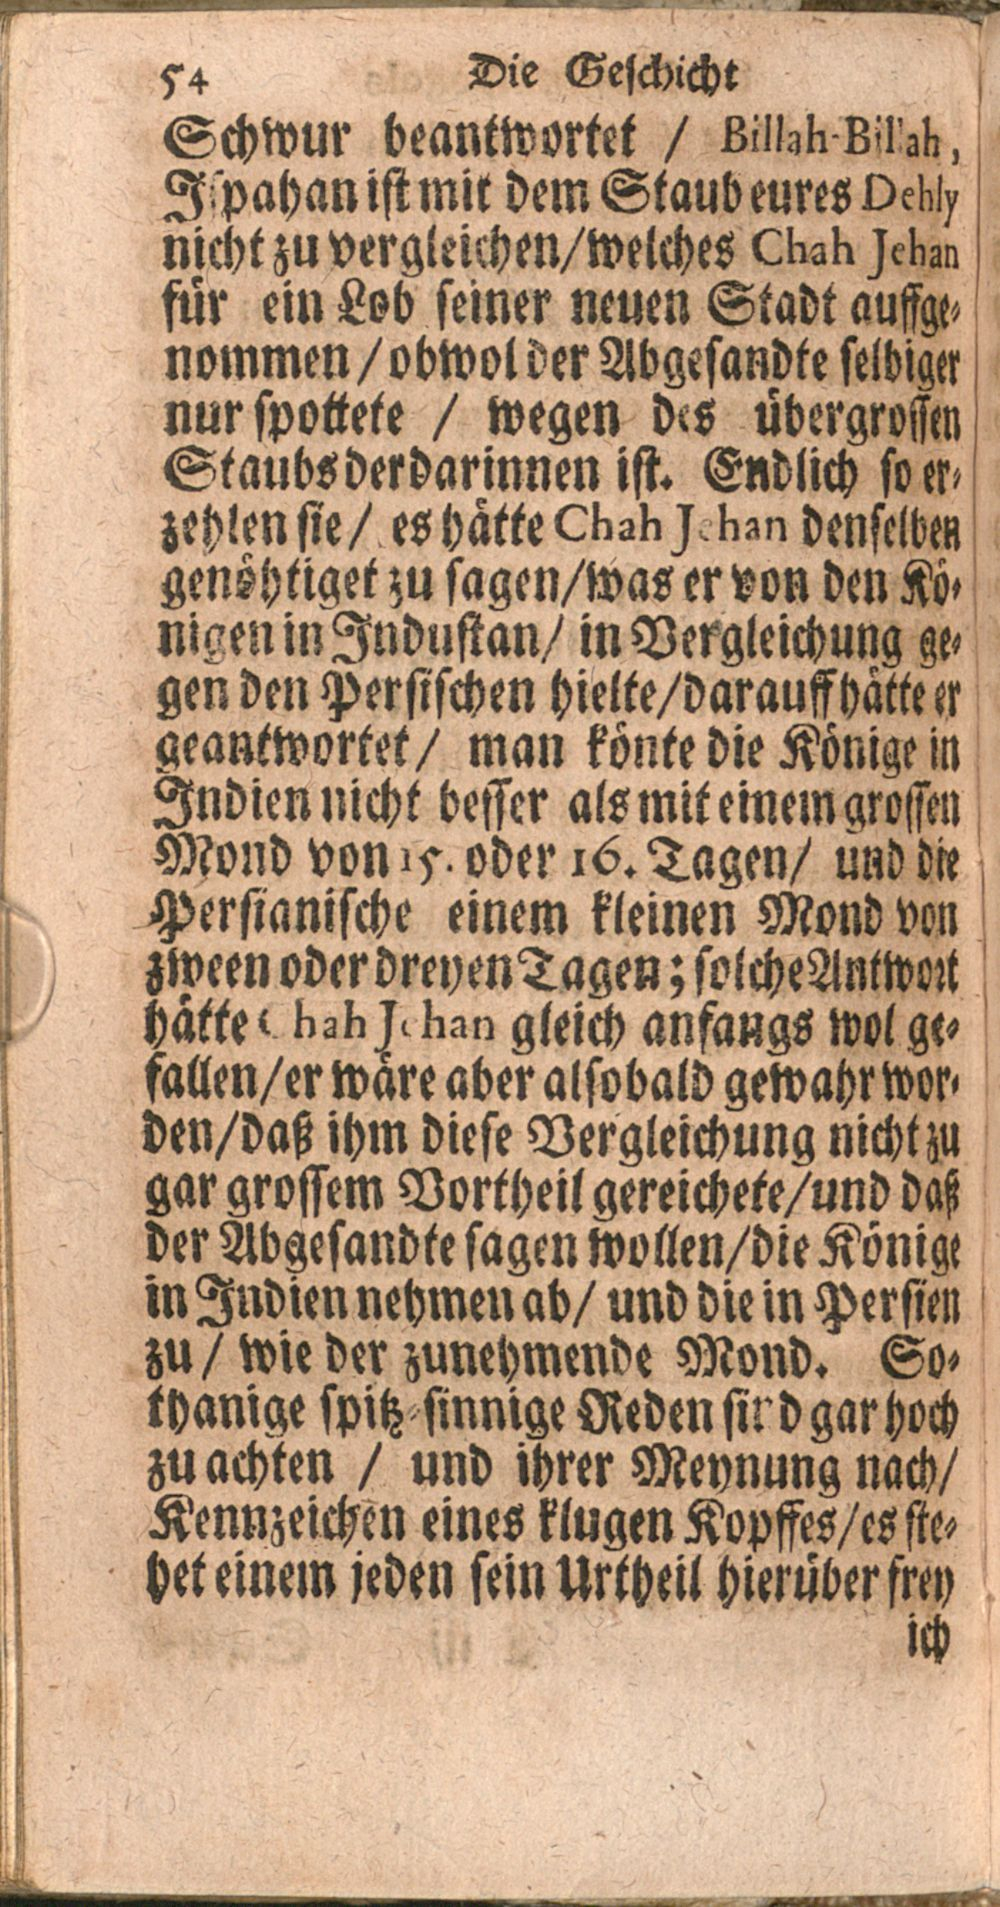 54 Die Geschicht
Schwur beantwortet / Billah-Billah,
Ispahan ist mit dem Staub eures Dehly
nicht zu vergleichen/welches Chah Jehan
für ein Lob seiner neuen Stadt auffge-
nommen / obwol der Abgesandte selbiger
nur spottete / wegen des übergrossen
Staubs der darinnen ist. Endlich so er-
zehlen sie / es hätte Chah Jehan denselben
genöhtiget zu sagen/was er von den Kö-
nigen in Industan/ in Vergleichung ge-
gen den Persischen hielte/darauff hätte er
geantwortet / man könte die Könige in
Indien nicht besser als mit einem grossen
Mond von 15. oder 16. Tagen/ und die
Persianische einem kleinen Mond von
zween oder dreyen Tagen; solche Antwort
hätte Chah Jehan gleich anfangs wol ge-
fallen/er wäre aber alsobald gewahr wor-
den/daß ihm diese Vergleichung nicht zu
gar grossem Vortheil gereichete/und daß
der Abgesandte sagen wollen/die Könige
in Indien nehmen ab/ und die in Persien
zu / wie der zunehmende Mond. So-
thanige spitz-sinnige Reden sind gar hoch
zu achten / und ihrer Meynung nach/
Kennzeichen eines klugen Kopffes/es ste-
het einem jeden sein Urtheil hierüber frey
ich